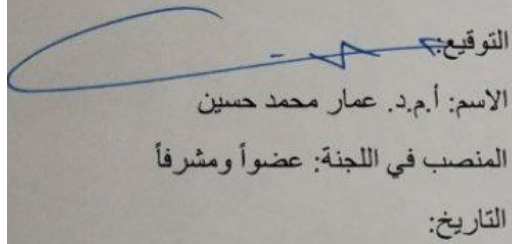 التوقيع:
الاسم: أ.م.د. عمار محمد حسين
المنصب في اللجنة: عضواً ومشرفاً
التاريخ: